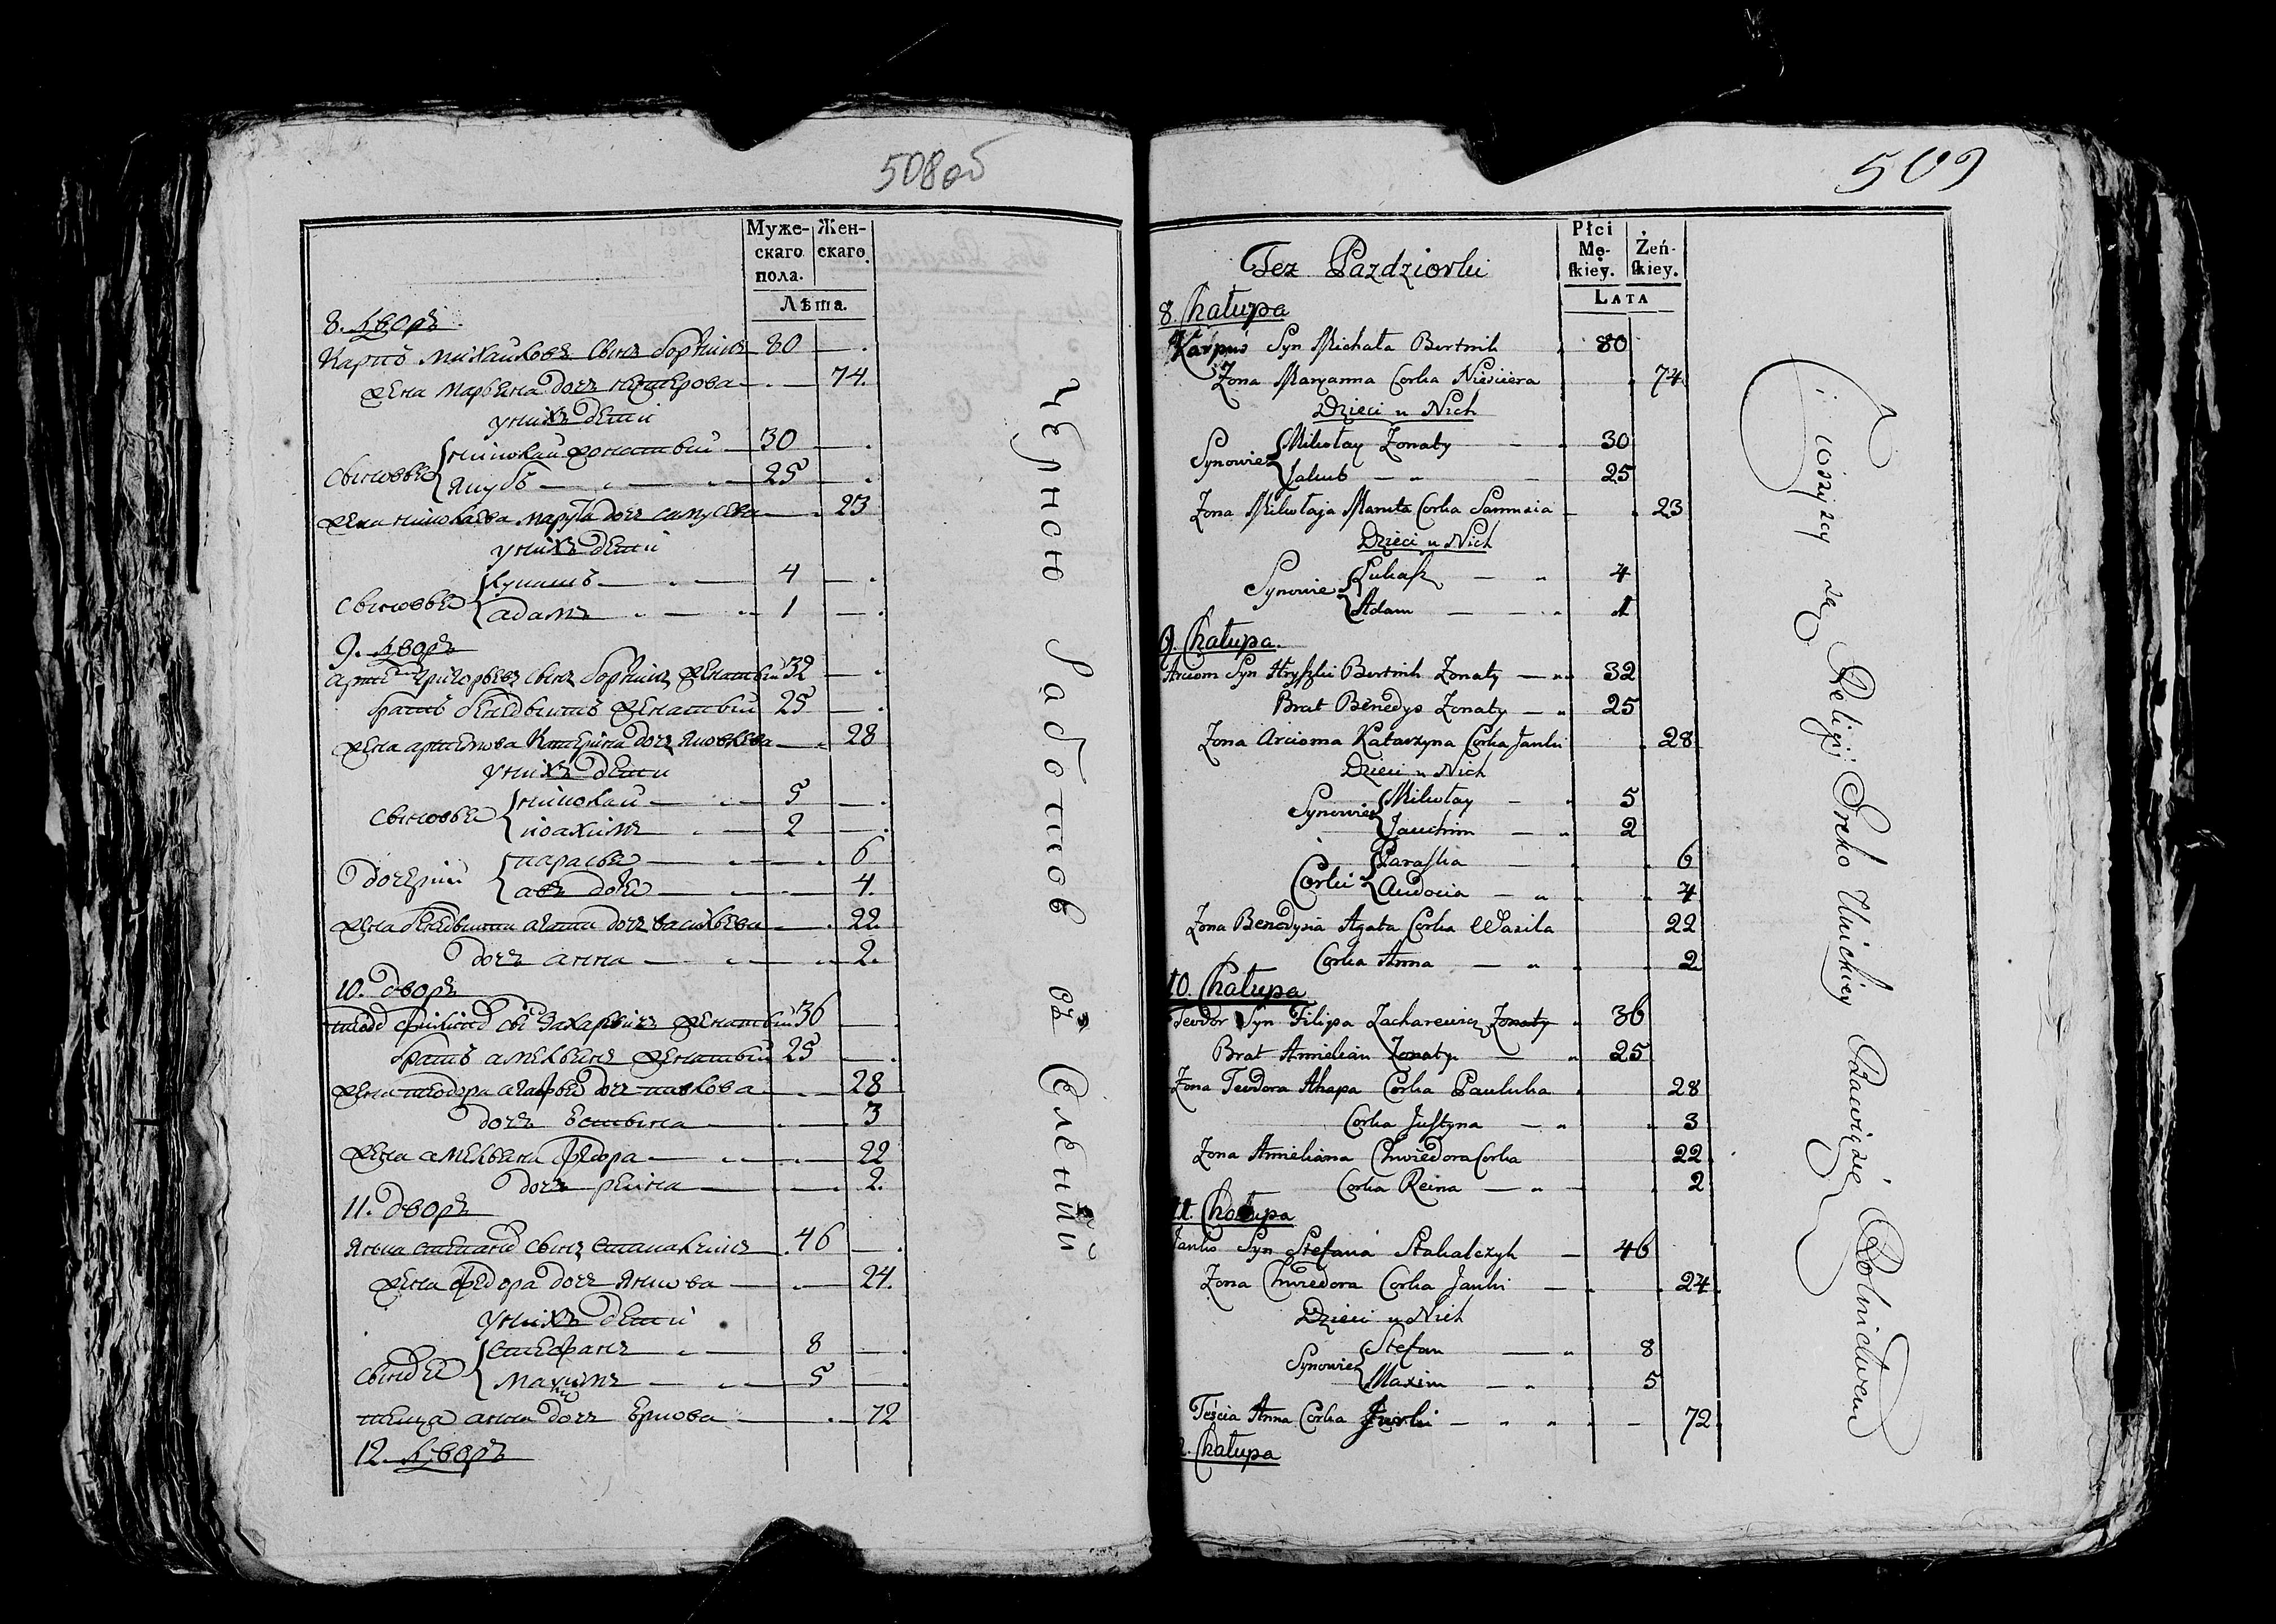 508об
Муже-скаго пола. Жен-скаго.
Лѣта.
8. Дворъ
Карпъ Михайловъ сынъ бортникъ 80
жена Марьяна дочь 74.
у нихъ дети
сыновья Николай женатый 30
Якубъ 25
жена Николаева Марута дочь Самусева 23
у нихъ дети
сыновья
Лукашъ 4
Адамъ 1
9. Дворъ
Григорьевъ сынъ бортникъ женатый 32
братъ бенедыктъ женатый 25
жена артемова Катерина дочь Яновкева 28
у нихъ дети
сыновья Николай 5
иоахимъ 2
дочери парасья 6
авъдотья 4.
жена агата дочь васильева 22.
дочь анна 2.
10. дворъ
Захаревичъ женатый 36
братъ амельянъ женатый 25
жена теодора агафья дочь 28
дочь 3
жена амельяна федора 22
дочь рейна 2.
11. дворъ
Янка сынъ 46
жена федора дочь Янкова 24.
у нихъ дети
сыновья Стефанъ 8
Макимъ 5
теща анна дочь 72
12. Дворъ
чернорабочов въ селении
509
Tez Pazdziorki
Płci Mę-skiey. Żeń-skiey.
LATA
8. Chałupa
Karpus Syn Michała Bortnik 80
Zona Maryanna Corka 74
Dzieci u Nich
Synowie Mikołay Zonaty 30
Jakub 25
Zona Mikołaja Maruta Corka Samusia 23
Dzieci u Nich
Synowie Łukasz 4
Adam 1
9. Chałupa.
Arciom Syn Hryszki Bortnik Zonaty 32
Brat Benedys Zonaty 25
Zona Arcioma Katarzyna Corka Janki 28
Dzieci u Nich
Synowie Mikołay 5
Jauchim 2
Corki Paraska 6
Audocia 4
Zona Benedysia Agata Corka Wasila 22
Corka Anna 2
10. Chałupa
Teodor Syn Filipa Zacharewicz Zonaty 36
Brat Amielian Zonaty 25
Zona Teodora Ahapa Corka Pauluka 28
Corka Justyna 3
Zona Amieliana Chwiedora Corka 22
Corka Reina 2
11. Chałupa
Janko Syn Stefana Stakalczyk 46
Zona Chwiedora Corka Janki 24
Dzieci u Nich
Synowie Stefan 8
Maxim 5
Teścia Anna Corka Jurki 72
Chałupa
i wszyzcy są Religij Greko Unickiey Bawią się Rolnictwem